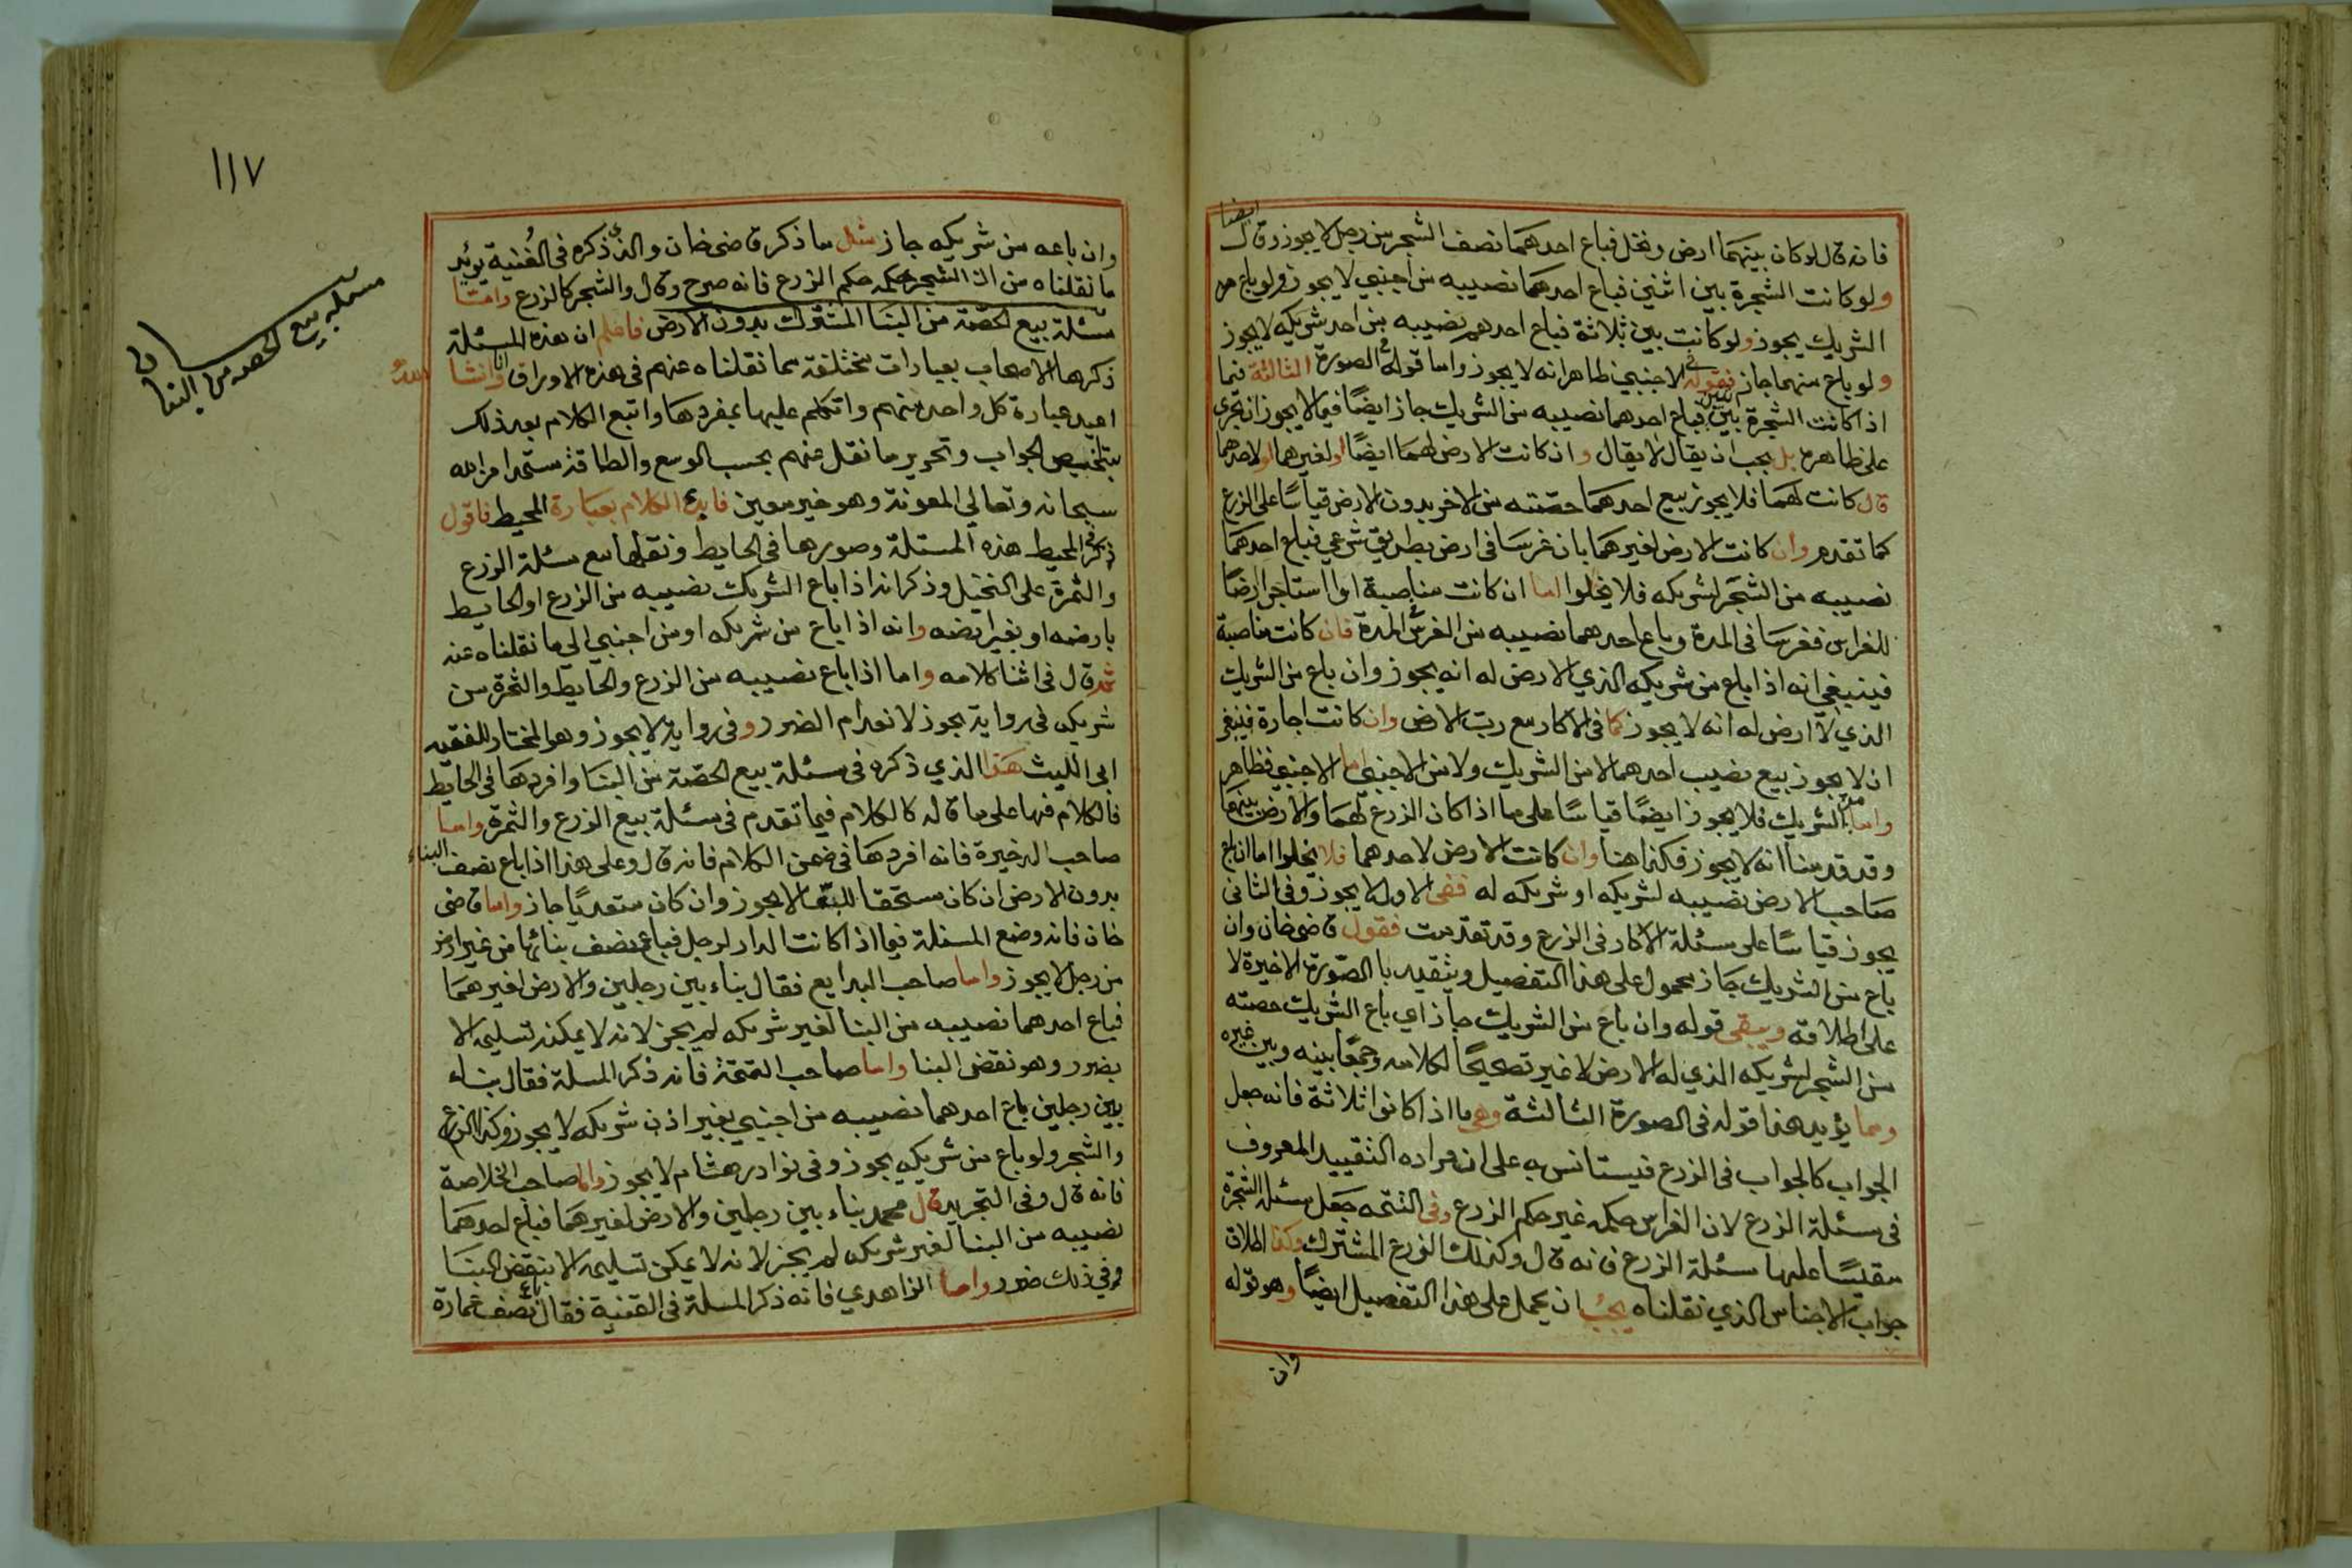 فانه قال لو كان بينهما ارض ونخل فباع احدهما نصف الشجر من رجل لا يجوز وقال ايضا
ولو كانت الشجرة بين اثنين فباع احدهما نصيبه من اجنبي لا يجوز ولو باع من
الشريك يجوز ولو كانت بين ثلاثة فباع احدهم نصيبه من احد شريكه لا يجوز
ولو باع منهما جاز فقوله في الاجنبي ظاهر انه لا يجوز واما قوله الصورة الثالثة فيما
اذا كانت الشجرة بين اثنين فباع احدهما نصيبه من الشريك جاز ايضا فيما لا يجوز ان يجرى
على ظاهره بل يجب ان يقال لا يقال وان كانت الارض لهما ايضا او لغيرهما او لاحدهما
قال كانت لهما فلا يجوز بيع احدهما حصته من الاخر بدون الارض قياسا على الزرع
كما تقدم وان كانت الارض لغيرهما بان غرسا في ارض بطريق شرعي فباع احدهما
نصيبه من الشجر لشريكه فلا يخلوا اما ان كانت مناصبة او استاجرا ارضا
للغراس فغرسا في المدة وباع احدهما نصيبه من الغرس المدة فان كانت مناصبة
فينبغي انه اذا باع من شريكه الذي الارض له انه يجوز وان باع من الشريك
الذي لا ارض له انه لا يجوز كما في الاكار مع رب الارض وان كانت اجارة فينبغي
ان لا يجوز بيع نصيب احدهما لا من الشريك ولا من الاجنبي اما الاجنبي فظاهر
واما من الشريك فلا يجوز ايضا قياسا على ما اذا كان الزرع لهما والارض بينهما
وقد قدمنا انه لا يجوز فكذا هنا وان كانت الارض لاحدهما فلا يخلوا اما ان باع
صاحب الارض نصيبه لشريكه او شريكه له ففي الاول لا يجوز وفي الثاني
يجوز قياسا على مسئلة الاكار في الزرع وقد تقدمت فقول قاضي خان وان
باع من الشريك جاز محمول على هذا التفصيل ويتقيد با الصورة الاخيرة لا
على اطلاقه ويبقى قوله وان باع من الشريك جاز اي باع الشريك حصته
من الشجر لشريكه الذي له الارض لا غير تصحيحا لكلامه وجمعا بينه وبين غيره
ومما يؤيد هذا قوله في الصورة الثالثة وهي ما اذا كانوا ثلاثة فانه جعل
الجواب كالجواب في الزرع فيستانس به على ان مراده التقييد المعروف
في مسئلة الزرع لان الغراس حكمه غير حكم الزرع وفي التتمه جعل مسئلة الشجرة
مقيسا عليها مسئلة الزرع فانه قال وكذلك الزرع المشترك وكذا اطلاق
جواب الاجناس الذي نقلناه يجب ان يحمل على هذا التفصيل ايضا وهو قوله
وان
١١٧
وان باعه من شريكه جاز مثل ما ذكر قاضى خان والذي ذكره في القنية يؤيد
ما نقلناه من ان الشجر حكمه حكم الزرع فانه صرح وقال والشجر كالزرع واما
مسئلة بيع الحصة من البنا المشترك بدون الارض فاعلم ان هذه المسئلة
ذكرها الاصحاب بعبارات مختلفة مما نقلناه عنهم في هذه الاوراق وانا انشا الله
اعيد عبارة كل واحد منهم واتكلم عليها بمفردها واتبع الكلام بعد ذلك
بتلخيص الجواب وتحرير ما نقل عنهم بحسب الوسع والطاقة مستمدا من الله
سبحانه وتعالي المعونة وهو خير معين فابدء الكلام بعبارة المحيط فاقول
ذكر في المحيط هذه المسئلة وصورها في الحايط ونقلها مع مسئلة الزرع
والثمرة على النخيل وذكر انه اذا باع الشريك نصيبه من الزرع او الحايط
بارضه او بغير ارضه وانه اذا باع من شريكه او من اجنبي الي ما نقلناه عنه
ثم قال في اثنا كلامه واما اذا باع نصيبه من الزرع والحايط والثمرة من
شريكه في رواية يجوز لانعدام الضرر وفي رواية لا يجوز وهو المختار للفقيه
ابي الليث هذا الذي ذكره في مسئلة بيع الحصة من البنا وافردها في الحايط
فالكلام فيها على ما قاله كالكلام فيما تقدم في مسئلة بيع الزرع والثمرة واما
صاحب الذخيرة فانه افردها في ضمن الكلام فانه قال وعلى هذا اذا باع نصف البناء
بدون الارض ان كان مستحقا للبقا لا يجوز وان كان متعديا جاز واما قاضى
خان فانه وضع المسئلة فيما اذا كانت الدار لرجل فباع نصف بنائها من غير ارض
من رجل لا يجوز واما صاحب البدايع فقال بناء بين رجلين والارض لغيرهما
فباع احدهما نصيبه من البنا لغير شريكه لم يجز لانه لا يمكنه تسليمه الا
بضرر وهو نقض البنا واما صاحب التتمة فانه ذكر المسلة فقال بناء
بين رجلين باع احدهما نصيبه من اجنبي بغير اذن شريكه لا يجوز وكذا الزرع
والشجر ولو باع من شريكه يجوز وفي نوادر هشام لا يجوز واما صاحب الخلاصة
فانه قال وفي التجريد قال محمد بناء بين رجلين والارض لغيرهما فباع احدهما
نصيبه من البنا لغير شريكه لم يجز لانه لا يمكن تسليمه الا بنقض البنا
وفي ذلك ضرر واما الزاهدي فانه ذكر المسلة في القنية فقال باع نصف عمارة
مسئلة بيع الحصة من البناء